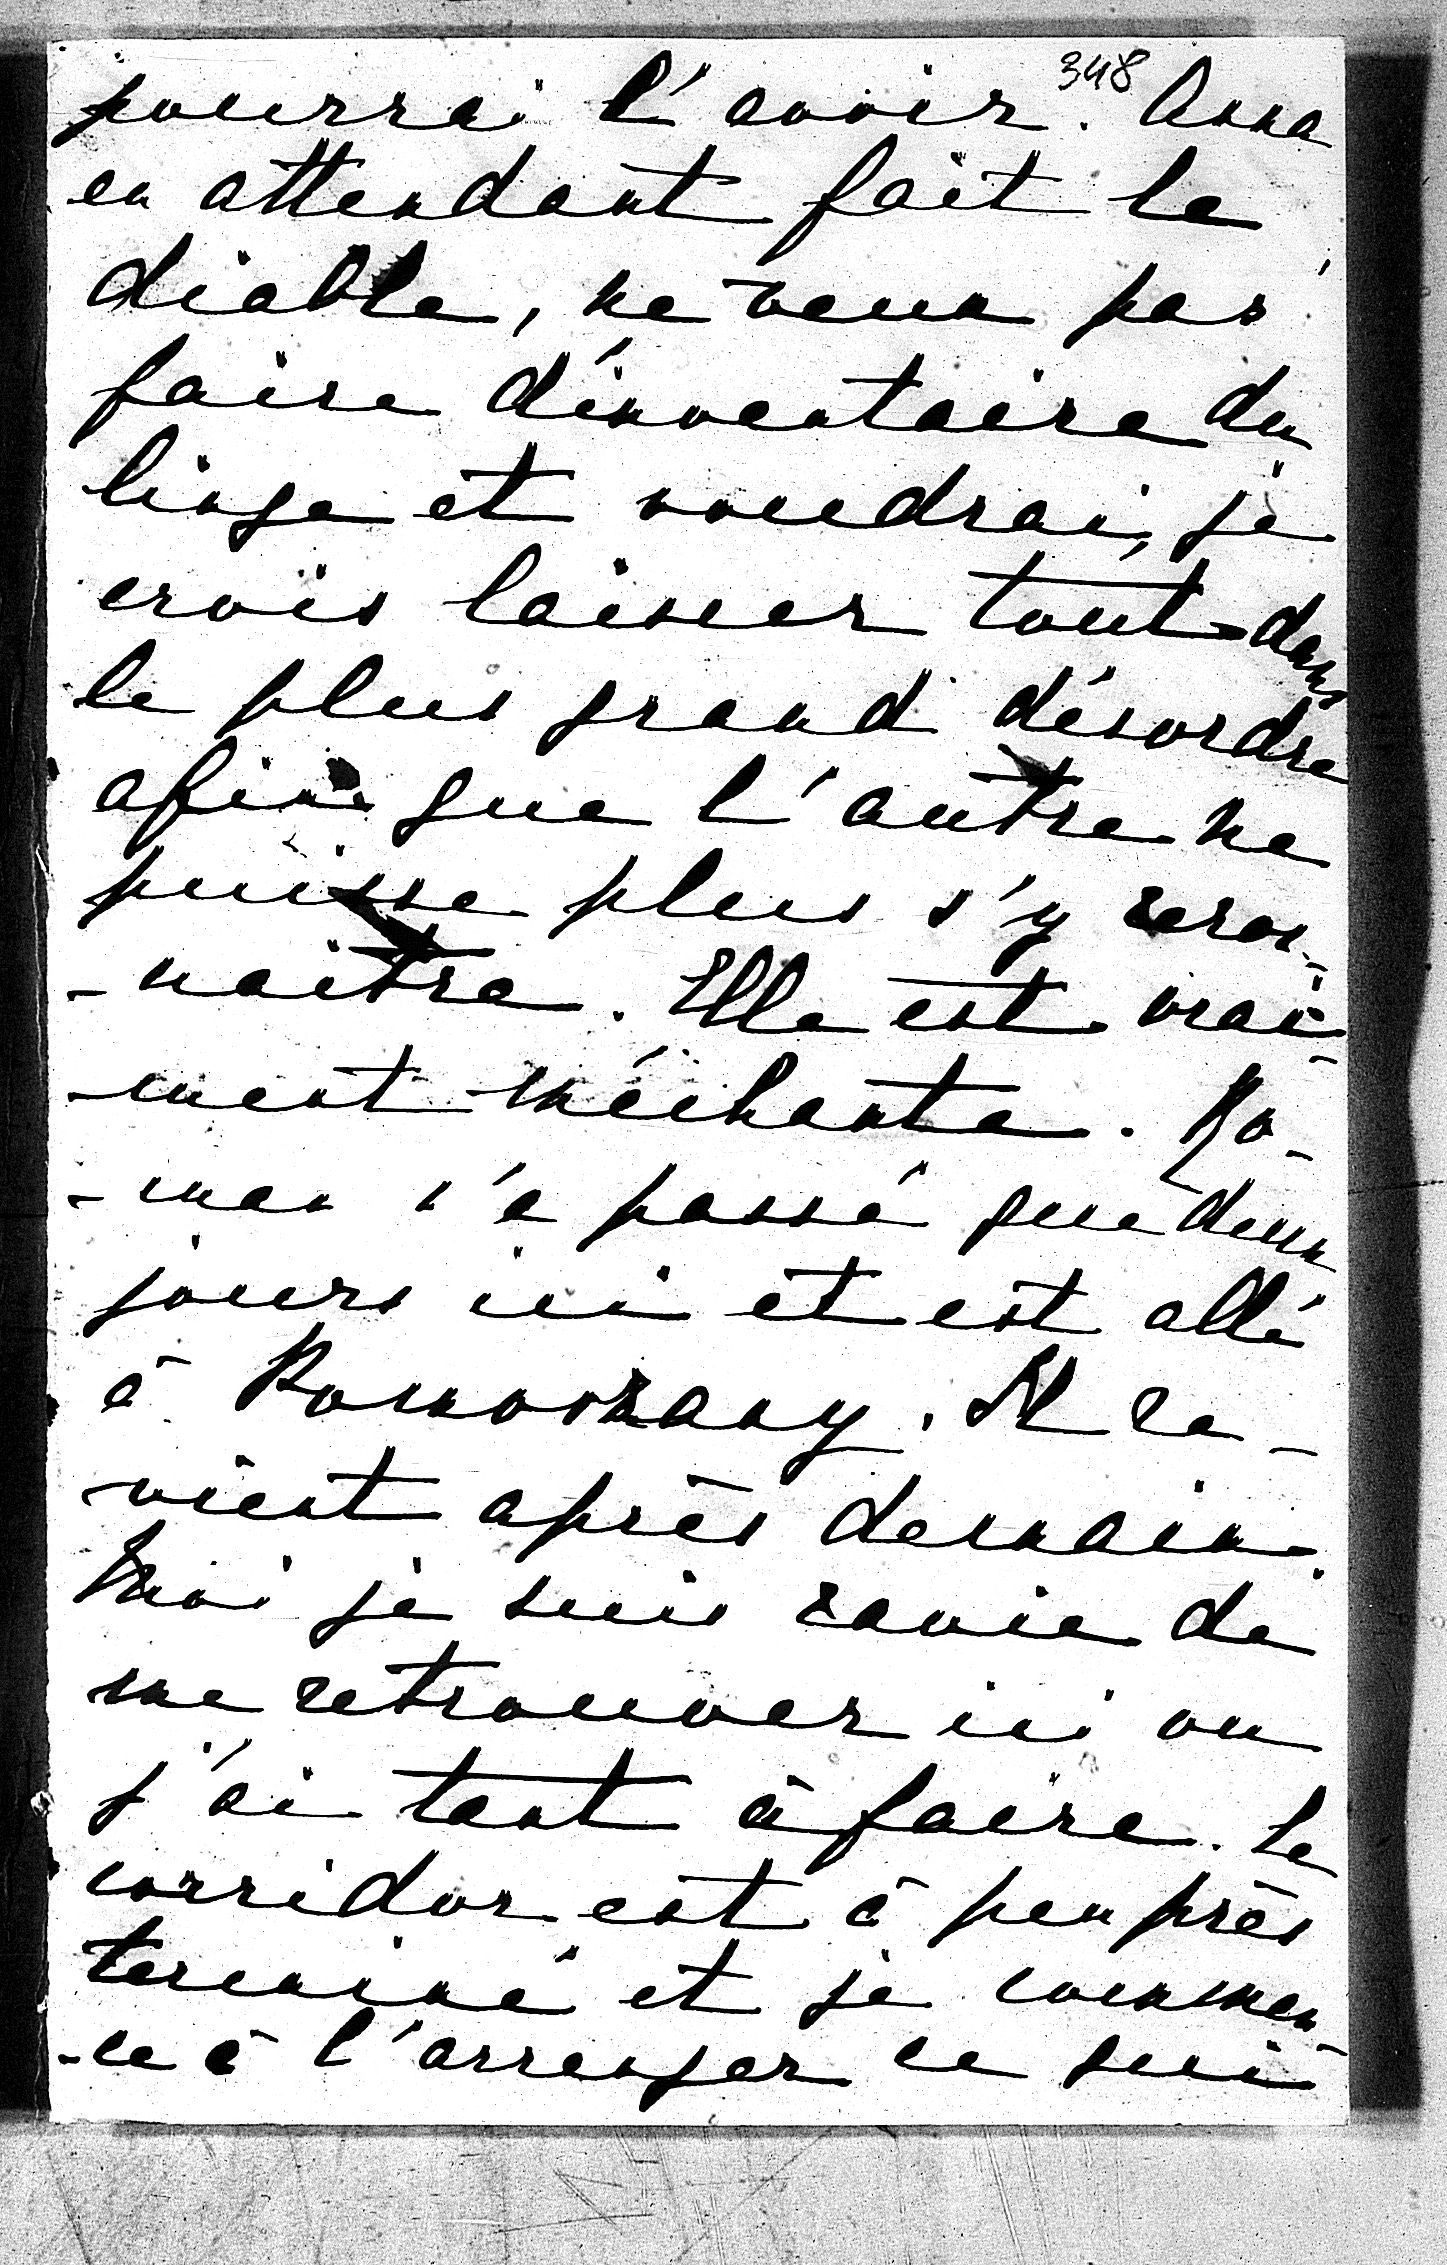 348
pourrai l'avoir. Anna
en attendant fait le
diable, ne veux pas
faire d'inventaire du
linge et voudrai, je
crois laisser tout dans
le plus grand désordre
afin que l'autre ne
puisse plus s'y recon-
-naître. Elle est vrai-
-ment méchante. Ro-
-man n'a passé que deux
jours ici et est allé
à Pomorzany. Il re-
vient après demain.
Moi je suis ravie de
me retrouver ici ou
j'ai tant à faire. Le
corridor est à peu près
terminé et je commen-
-ce à l'arranger ce qui